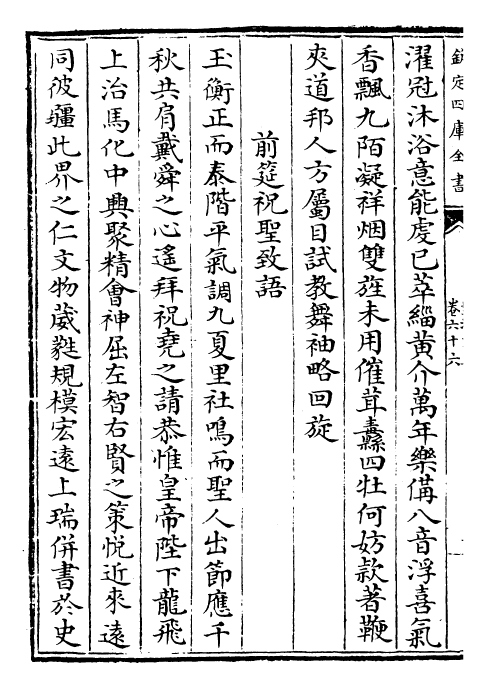 欽定四庫全書
卷六十六
濯冠沐浴意能虔已萃緇黄介萬年樂備八音浮喜氣
香飄九陌凝祥烟雙旌未用催茸纛四牡何妨款著鞭
夾道邦人方屬目試教舞袖略回旋
前筵祝聖致語
玉衡正而泰階平氣調九夏里社鳴而聖人出節應千
秋共肩戴舜之心遙拜祝堯之請恭惟皇帝陛下龍飛
上治馬化中興聚精會神屈左智右賢之策悦近來遠
同彼疆此界之仁文物葳蕤規模宏遠上瑞併書於史